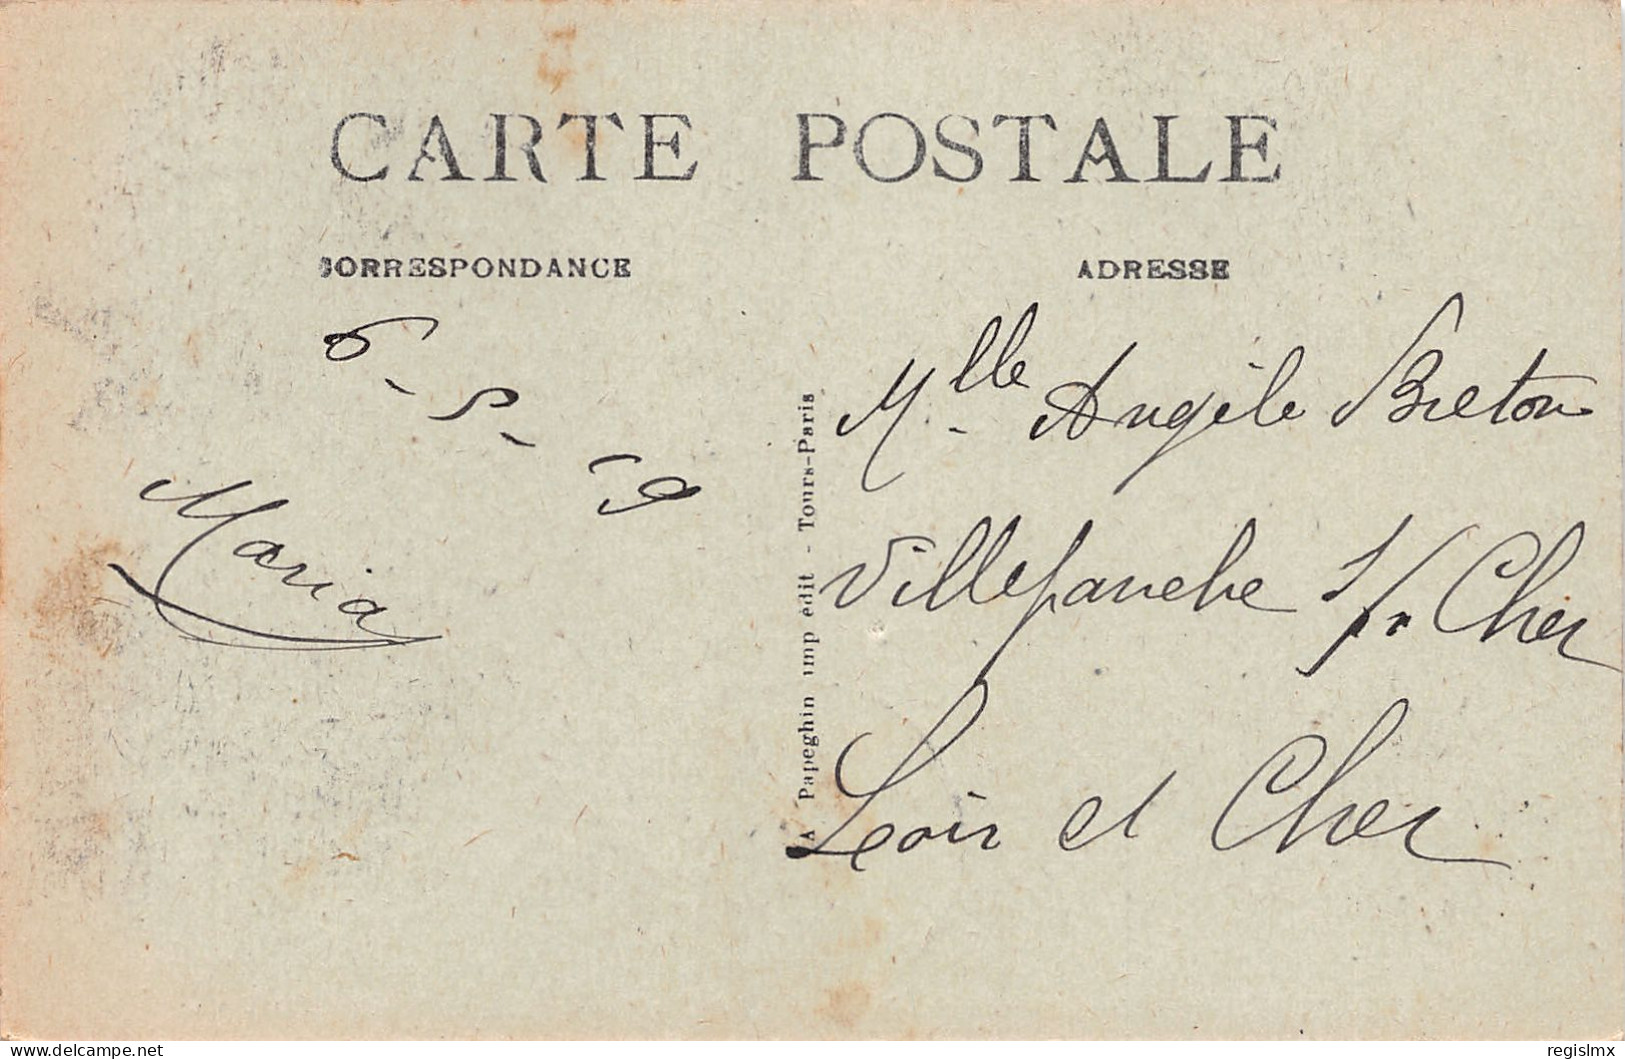 CARTE POSTALE
CORRESPONDANCE
6 - 5 - 19
Maria
A Papeghin imp édit - Tours-Paris
ADRESSE
Mlle Angèle Breton
Villefranche s/ Cher
Loir et Cher
delcampe.net
regislmx